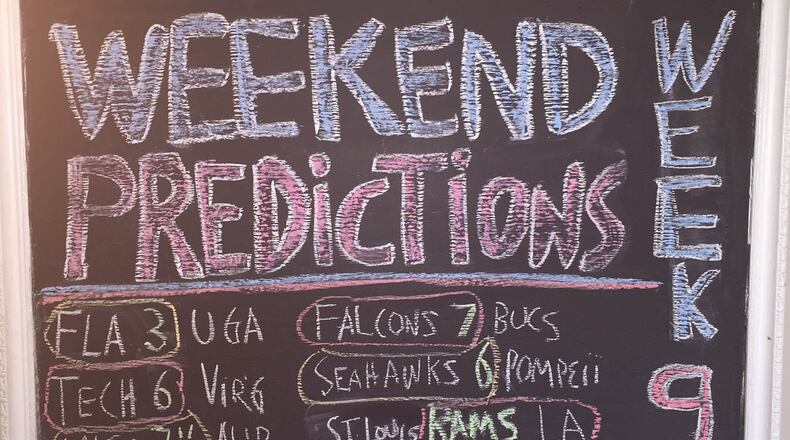 WEEKEND
PREDiCTiONS
WEEK 9
FLA 3 UGA
TECH 6 VIRG
FALCONS 7 BUCS
SEAHAWKS 6 POMPEii
ST. LOUIS RAMS LA